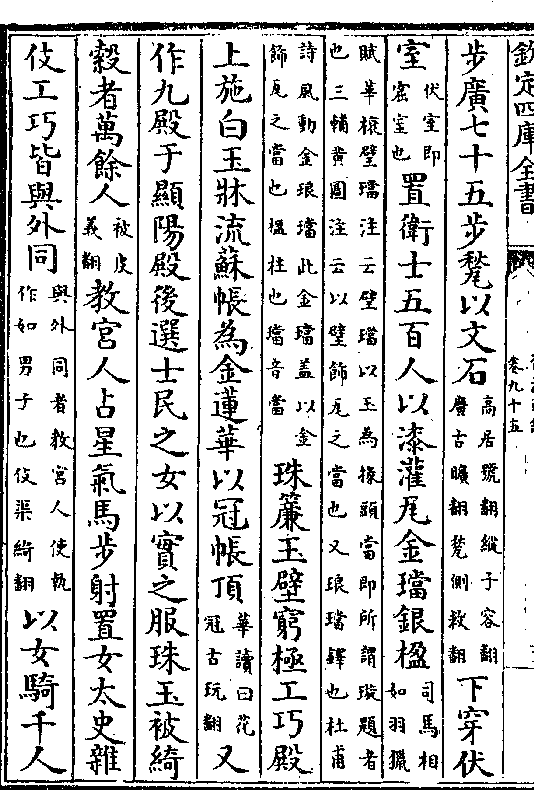 欽定四庫全書
卷九十五
步廣七十五步甃以文石
高居號翻縱子容翻
廣古曠翻甃側救翻
下穿伏
室
伏室即
室也
置衛士五百人以漆灌瓦金璫銀楹
司馬相
如羽獵
賦華榱璧璫注云璧璫以玉為椽頭當即所謂璇題者
也三輔黃圖注云以璧飾瓦之當也又琅璫鐸也杜甫
詩風動金琅璫此金璫盖以金
飾瓦之當也楹柱也璫音當
珠簾玉壁窮極工巧殿
上施白玉牀流蘇帳為金蓮華以冠帳頂
華讀曰花
冠古玩翻
又
作九殿于顯陽殿後選士民之女以實之服珠玉被綺
縠者萬餘人
被皮
義翻
教宮人占星氣馬步射置女太史雜
伎工巧皆與外同
與外同者教宮人使執
作如男子也伎渠綺翻
以女騎千人